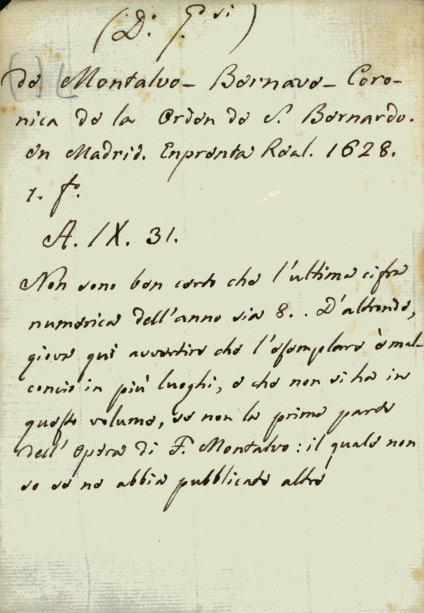 (D. G.si)
de Montalvo - Bernave - Coro-
nica de la Orden de S. Bernardo.
en Madrid. Enprenta Real. 1628.
1. fo.
A. IX. 31.
Non sono ben certo che l'ultima cifra
numerica dell'anno sia 8. . D'altronde,
giova quì avvertire che l'esemplare è mal-
concio in più luoghi, e che non si ha in
questo volume, se non la prima parte
dell'opera di F. Montalvo: il quale non
so se ne abbia pubblicate altre